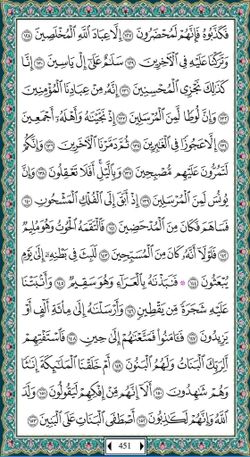 فَكَذَّبُوهُ فَإِنَّهُمْ لَمُحْضَرُونَ ١٢٧ إِلَّا عِبَادَ اللَّهِ الْمُخْلَصِينَ ١٢٨
وَتَرَكْنَا عَلَيْهِ فِي الْآخِرِينَ ١٢٩ سَلَامٌ عَلَىٰ إِلْ يَاسِينَ ١٣٠ إِنَّا
كَذَٰلِكَ نَجْزِي الْمُحْسِنِينَ ١٣١ إِنَّهُ مِنْ عِبَادِنَا الْمُؤْمِنِينَ
١٣٢ وَإِنَّ لُوطًا لَّمِنَ الْمُرْسَلِينَ ١٣٣ إِذْ نَجَّيْنَاهُ وَأَهْلَهُ أَجْمَعِينَ
١٣٤ إِلَّا عَجُوزًا فِي الْغَابِرِينَ ١٣٥ ثُمَّ دَمَّرْنَا الْآخَرِينَ ١٣٦ وَإِنَّكُمْ
لَتَمُرُّونَ عَلَيْهِم مُّصْبِحِينَ ١٣٧ وَبِاللَّيْلِ أَفَلَا تَعْقِلُونَ ١٣٨ وَإِنَّ
يُونُسَ لَمِنَ الْمُرْسَلِينَ ١٣٩ إِذْ أَبَقَ إِلَى الْفُلْكِ الْمَشْحُونِ ١٤٠
فَسَاهَمَ فَكَانَ مِنَ الْمُدْحَضِينَ ١٤١ فَالْتَقَمَهُ الْحُوتُ وَهُوَ مُلِيمٌ
١٤٢ فَلَوْلَا أَنَّهُ كَانَ مِنَ الْمُسَبِّحِينَ ١٤٣ لَلَبِثَ فِي بَطْنِهِ إِلَىٰ يَوْمِ
يُبْعَثُونَ ١٤٤ فَنَبَذْنَاهُ بِالْعَرَاءِ وَهُوَ سَقِيمٌ ١٤٥ وَأَنبَتْنَا
عَلَيْهِ شَجَرَةً مِّن يَقْطِينٍ ١٤٦ وَأَرْسَلْنَاهُ إِلَىٰ مِائَةِ أَلْفٍ أَوْ
يَزِيدُونَ ١٤٧ فَآمَنُوا فَمَتَّعْنَاهُمْ إِلَىٰ حِينٍ ١٤٨ فَاسْتَفْتِهِمْ
أَلِرَبِّكَ الْبَنَاتُ وَلَهُمُ الْبَنُونَ ١٤٩ أَمْ خَلَقْنَا الْمَلَائِكَةَ إِنَاثًا
وَهُمْ شَاهِدُونَ ١٥٠ أَلَا إِنَّهُم مِّنْ إِفْكِهِمْ لَيَقُولُونَ ١٥١ وَلَدَ
اللَّهُ وَإِنَّهُمْ لَكَاذِبُونَ ١٥٢ أَصْطَفَى الْبَنَاتِ عَلَى الْبَنِينَ ١٥٣
451